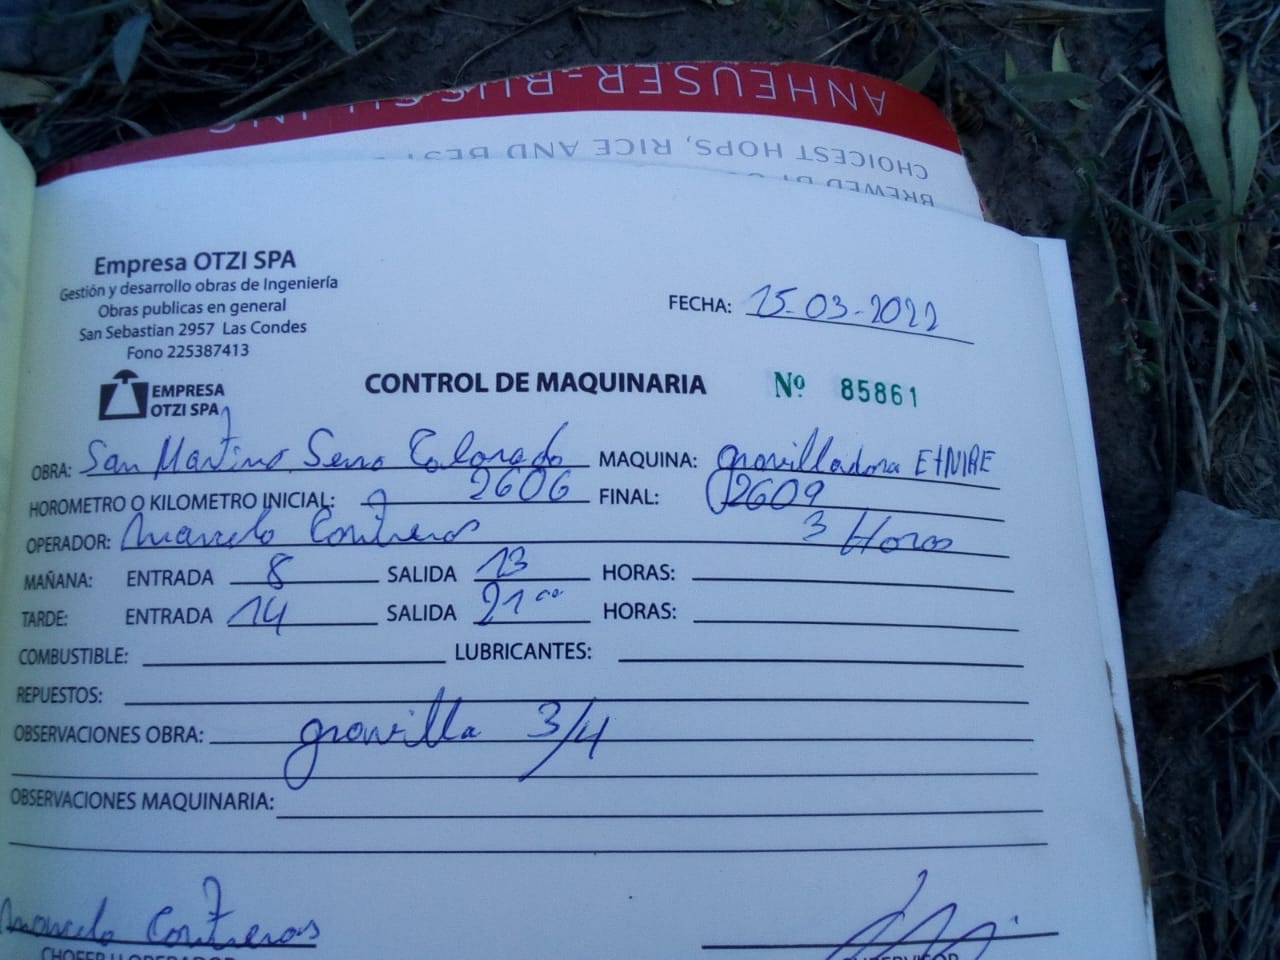 ANHEUSER-BUSCH, INC
CHOICEST HOPS, RICE AND BEST
BREWED BY
Empresa OTZI SPA
Gestión y desarrollo obras de Ingeniería
Obras publicas en general
San Sebastian 2957 Las Condes
Fono 225387413
FECHA: 15-03-2022
EMPRESA
OTZI SPA
CONTROL DE MAQUINARIA Nº 85861
OBRA: San Martino Serro Colorado MAQUINA: gravilladora
HOROMETRO O KILOMETRO INICIAL: 2606 FINAL: 2609
OPERADOR: Marcelo Contreras 3 Horas
MAÑANA: ENTRADA 8 SALIDA 13 HORAS:
TARDE: ENTRADA 14 SALIDA 21 00 HORAS:
COMBUSTIBLE: LUBRICANTES:
REPUESTOS:
OBSERVACIONES OBRA: gravilla 3/4
OBSERVACIONES MAQUINARIA:
Marcelo Contreras
CHOFER U OPERADOR SUPERVISOR